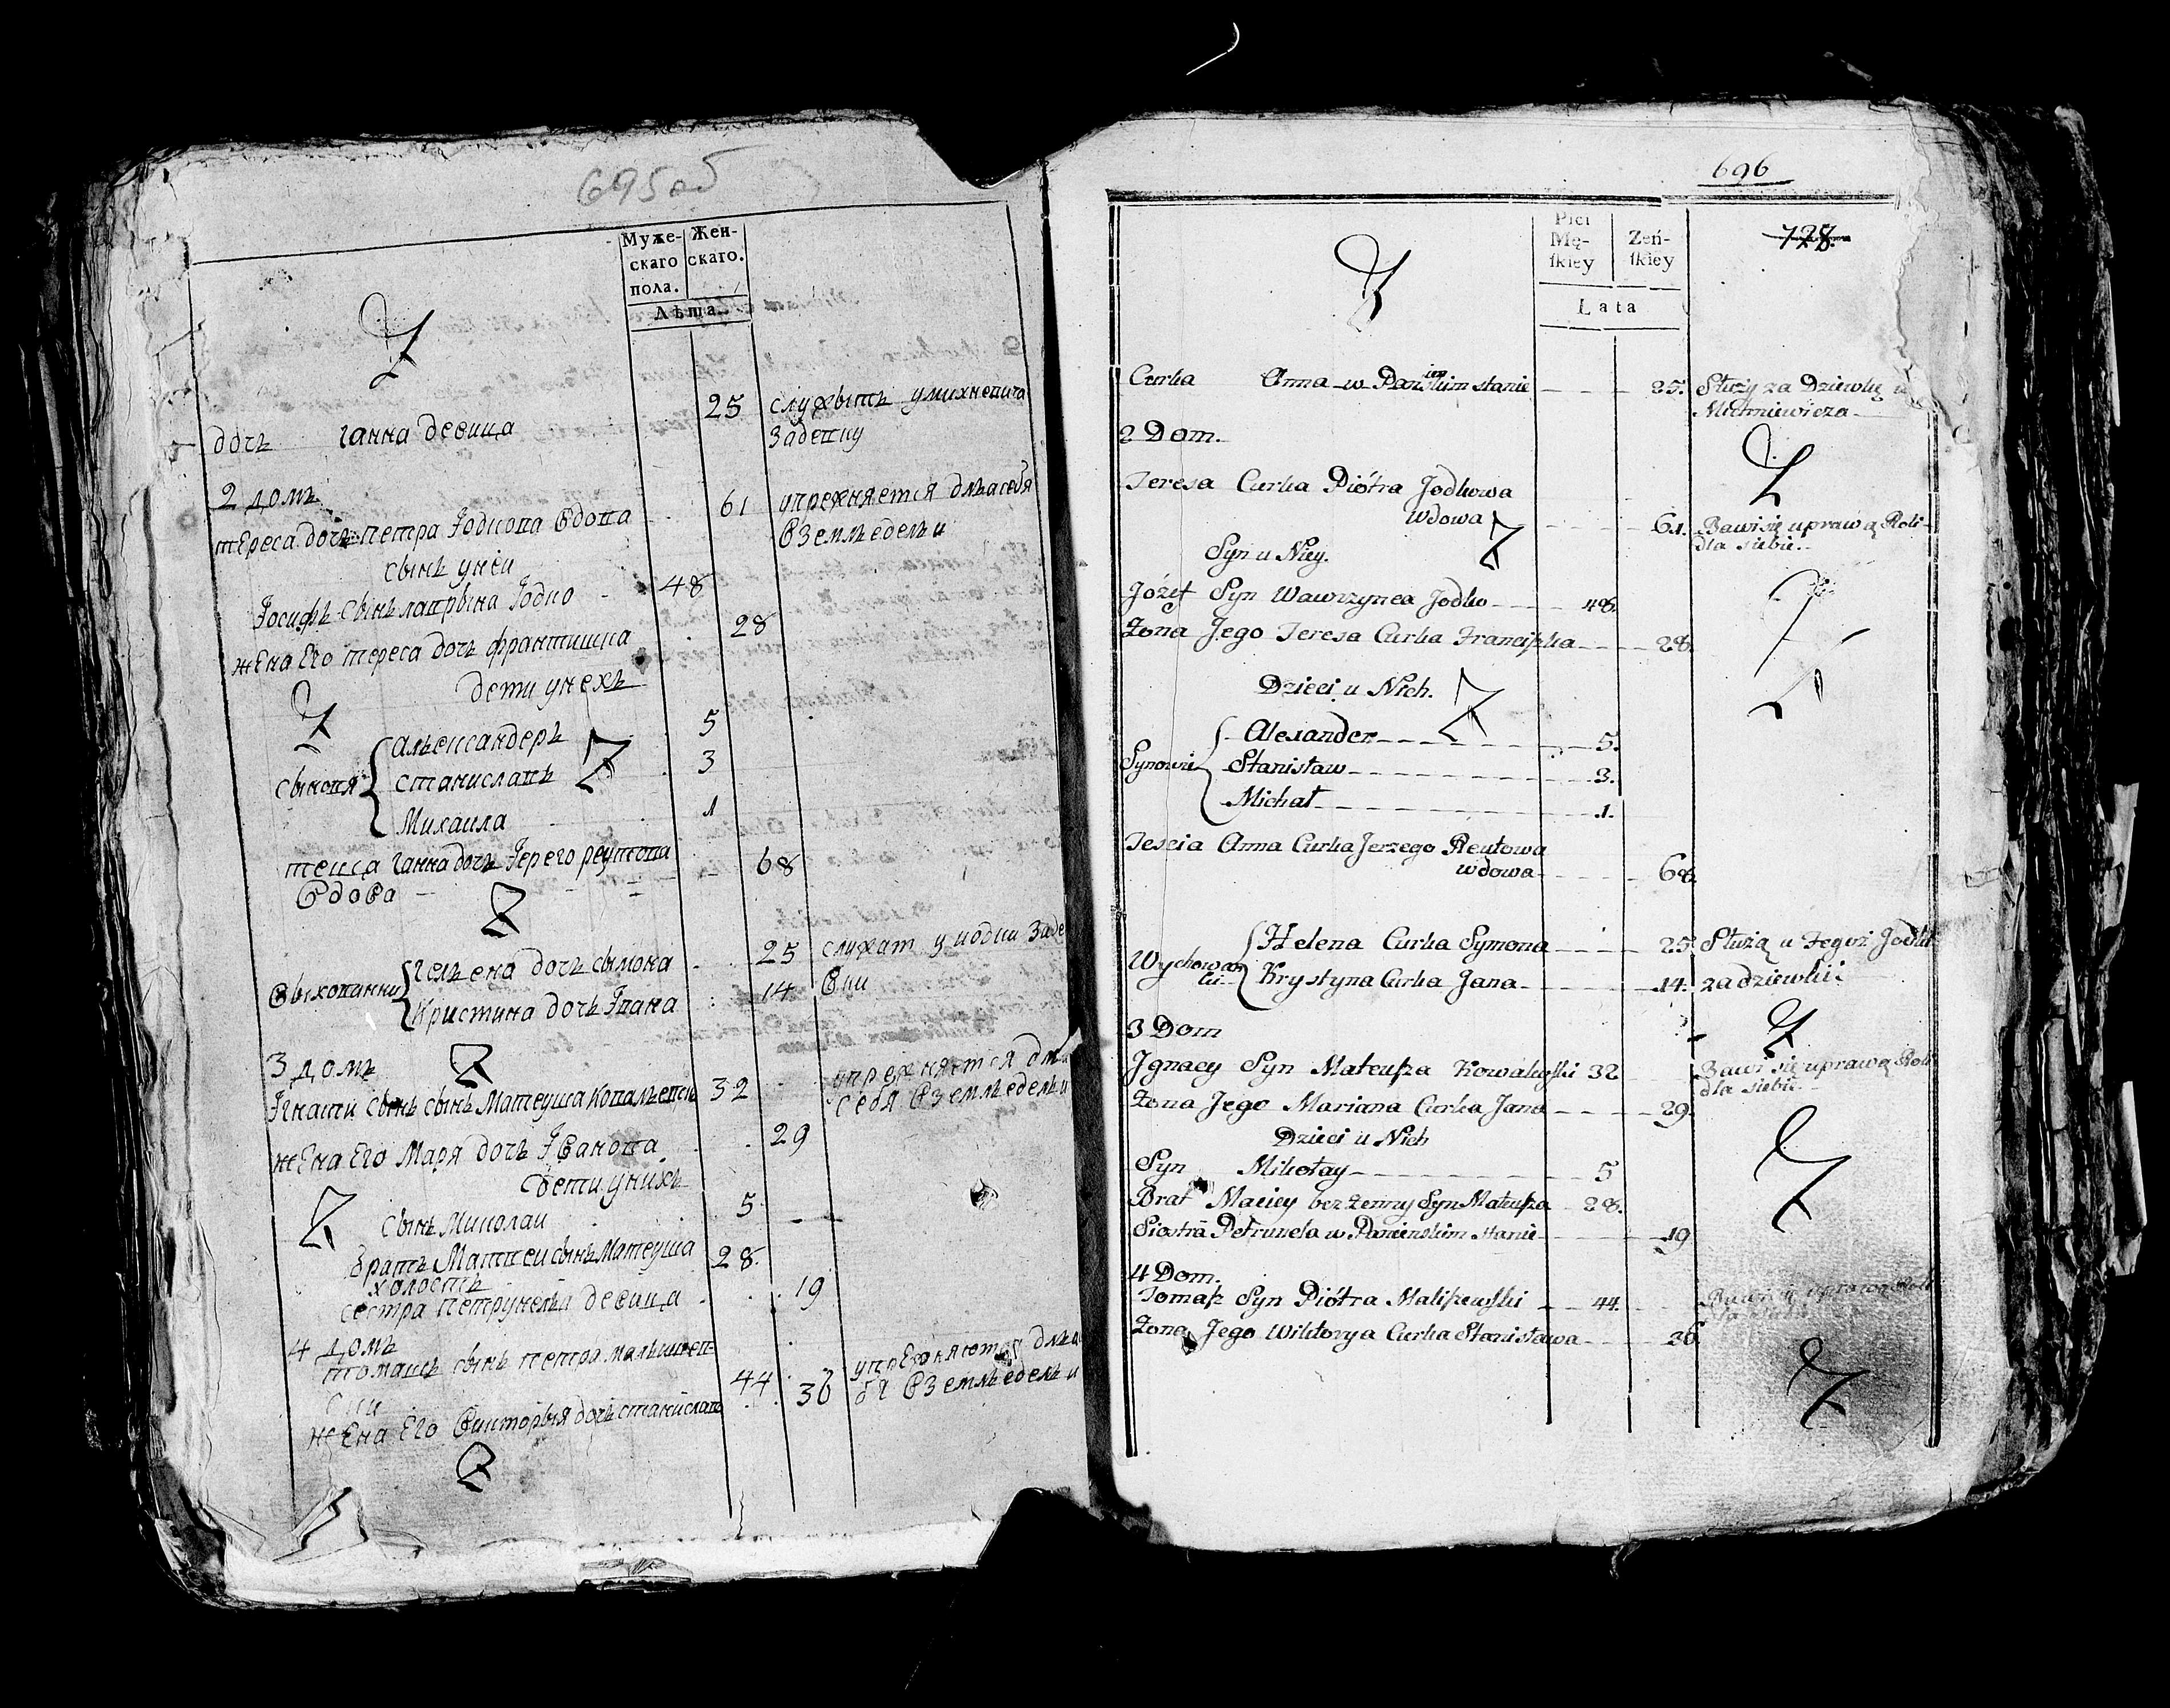 695об
Муже-
скаго
пола.
Жен-
скаго.
Лѣта.
дочь ганна девица 25 служытъ умихневича
задевку
2 домъ
тереса дочь петра Іодкова вдова 61 упрежняется длясебя
вземльеделыи
сынъ унеи
Іосифъ сынъ лаврына Іодко 48
жена Его тереса дочь франтишка 28
дети унехъ
сыновя
альександеръ 5
станиславъ 3
Михаила 1
тешса ганна дочь Іерего реутова 68
вдова
выхованки
гельена дочь сымона 25 служат у иодки заде
Кристина дочь Івана 14 вки
3 домъ
Ігнати сынъ сынъ Матеуша Ковальевски 32 упрежняется для
себя вземльеделыи
жена Его Маря дочь Іванова 29
дети унихъ
сынъ Миколаи 5
братъ Матвеи сынъ Матеуша 28.
холостъ
сестра петрунеля девица 19
4 домъ
томашъ сынъ петра малышев-
ски 44
жена Его викторыя дочь станислава 36
696
728
Płci
Mę-
ſkiey
Zeń-
ſkiey
Lata
Curka Anna w Panienskim stanie 25. Służy za Dziewkę u
Michniewicza
2 Dom.
Teresa Curka Piótra Jodkowa
wdowa 61. Bawi się uprawą Roli
dla siebie.
Syn u Niey.
Józef Syn Wawrzynca Jodko 48.
Żona Jego Teresa Curka Franciſzka 28.
Dzieci u Nich.
Synowie
Alexander 5.
Stanisław 3.
Michał 1.
Tescia Anna Curka Jerzego Reutowa
wdowa 68.
Wychowan
ki
Helena Curka Symona 25. Służą u Tegoż Jodki
Krystyna Curka Jana 14. za dziewki.
3 Dom
Jgnacy Syn Mateuſza Kowalewſki 32 Bawi się uprawą Roli
dla siebie.
Żona Jego Mariana Curka Jana 29.
Dzieci u Nich
Syn Mikołay 5
Brat Maciey bez żenny Syn Mateuſza 28.
Siostra Petrunela w Panienskim stanie 19
4 Dom.
Tomaſz Syn Piótra Maliſzewſki 44. Bawi się uprawą Roli
dla siebie
Żona Jego Wiktorya Curka Stanisława 36.